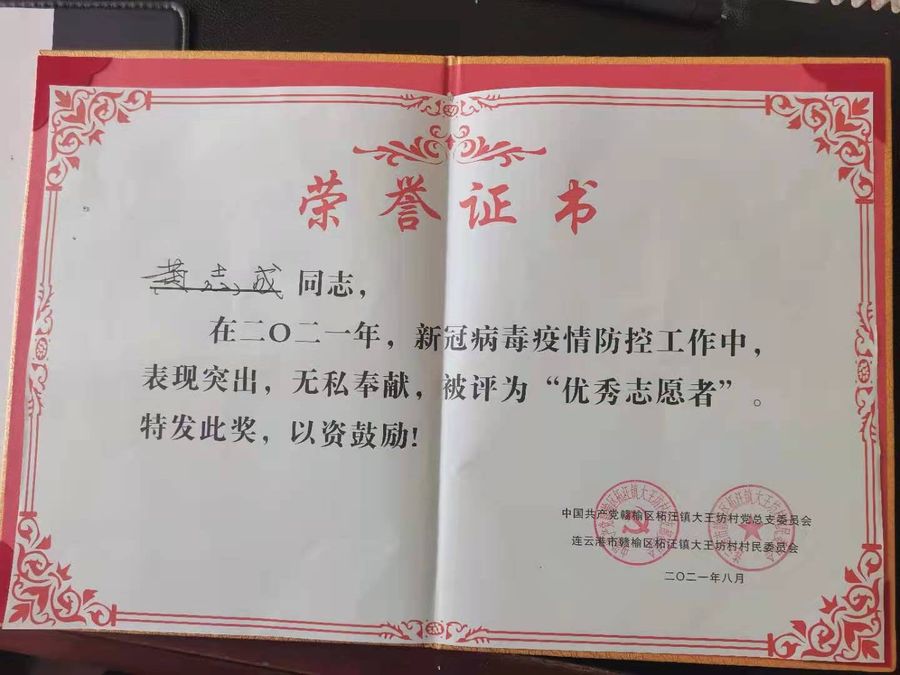 荣誉证书
黄志成同志，
在二〇二一年，新冠病毒疫情防控工作中，
表现突出，无私奉献，被评为“优秀志愿者”。
特发此奖，以资鼓励!
中国共产党赣榆区柘汪镇大王坊村党总支委员会
连云港市赣榆区柘汪镇大王坊村村民委员会
二〇二一年八月